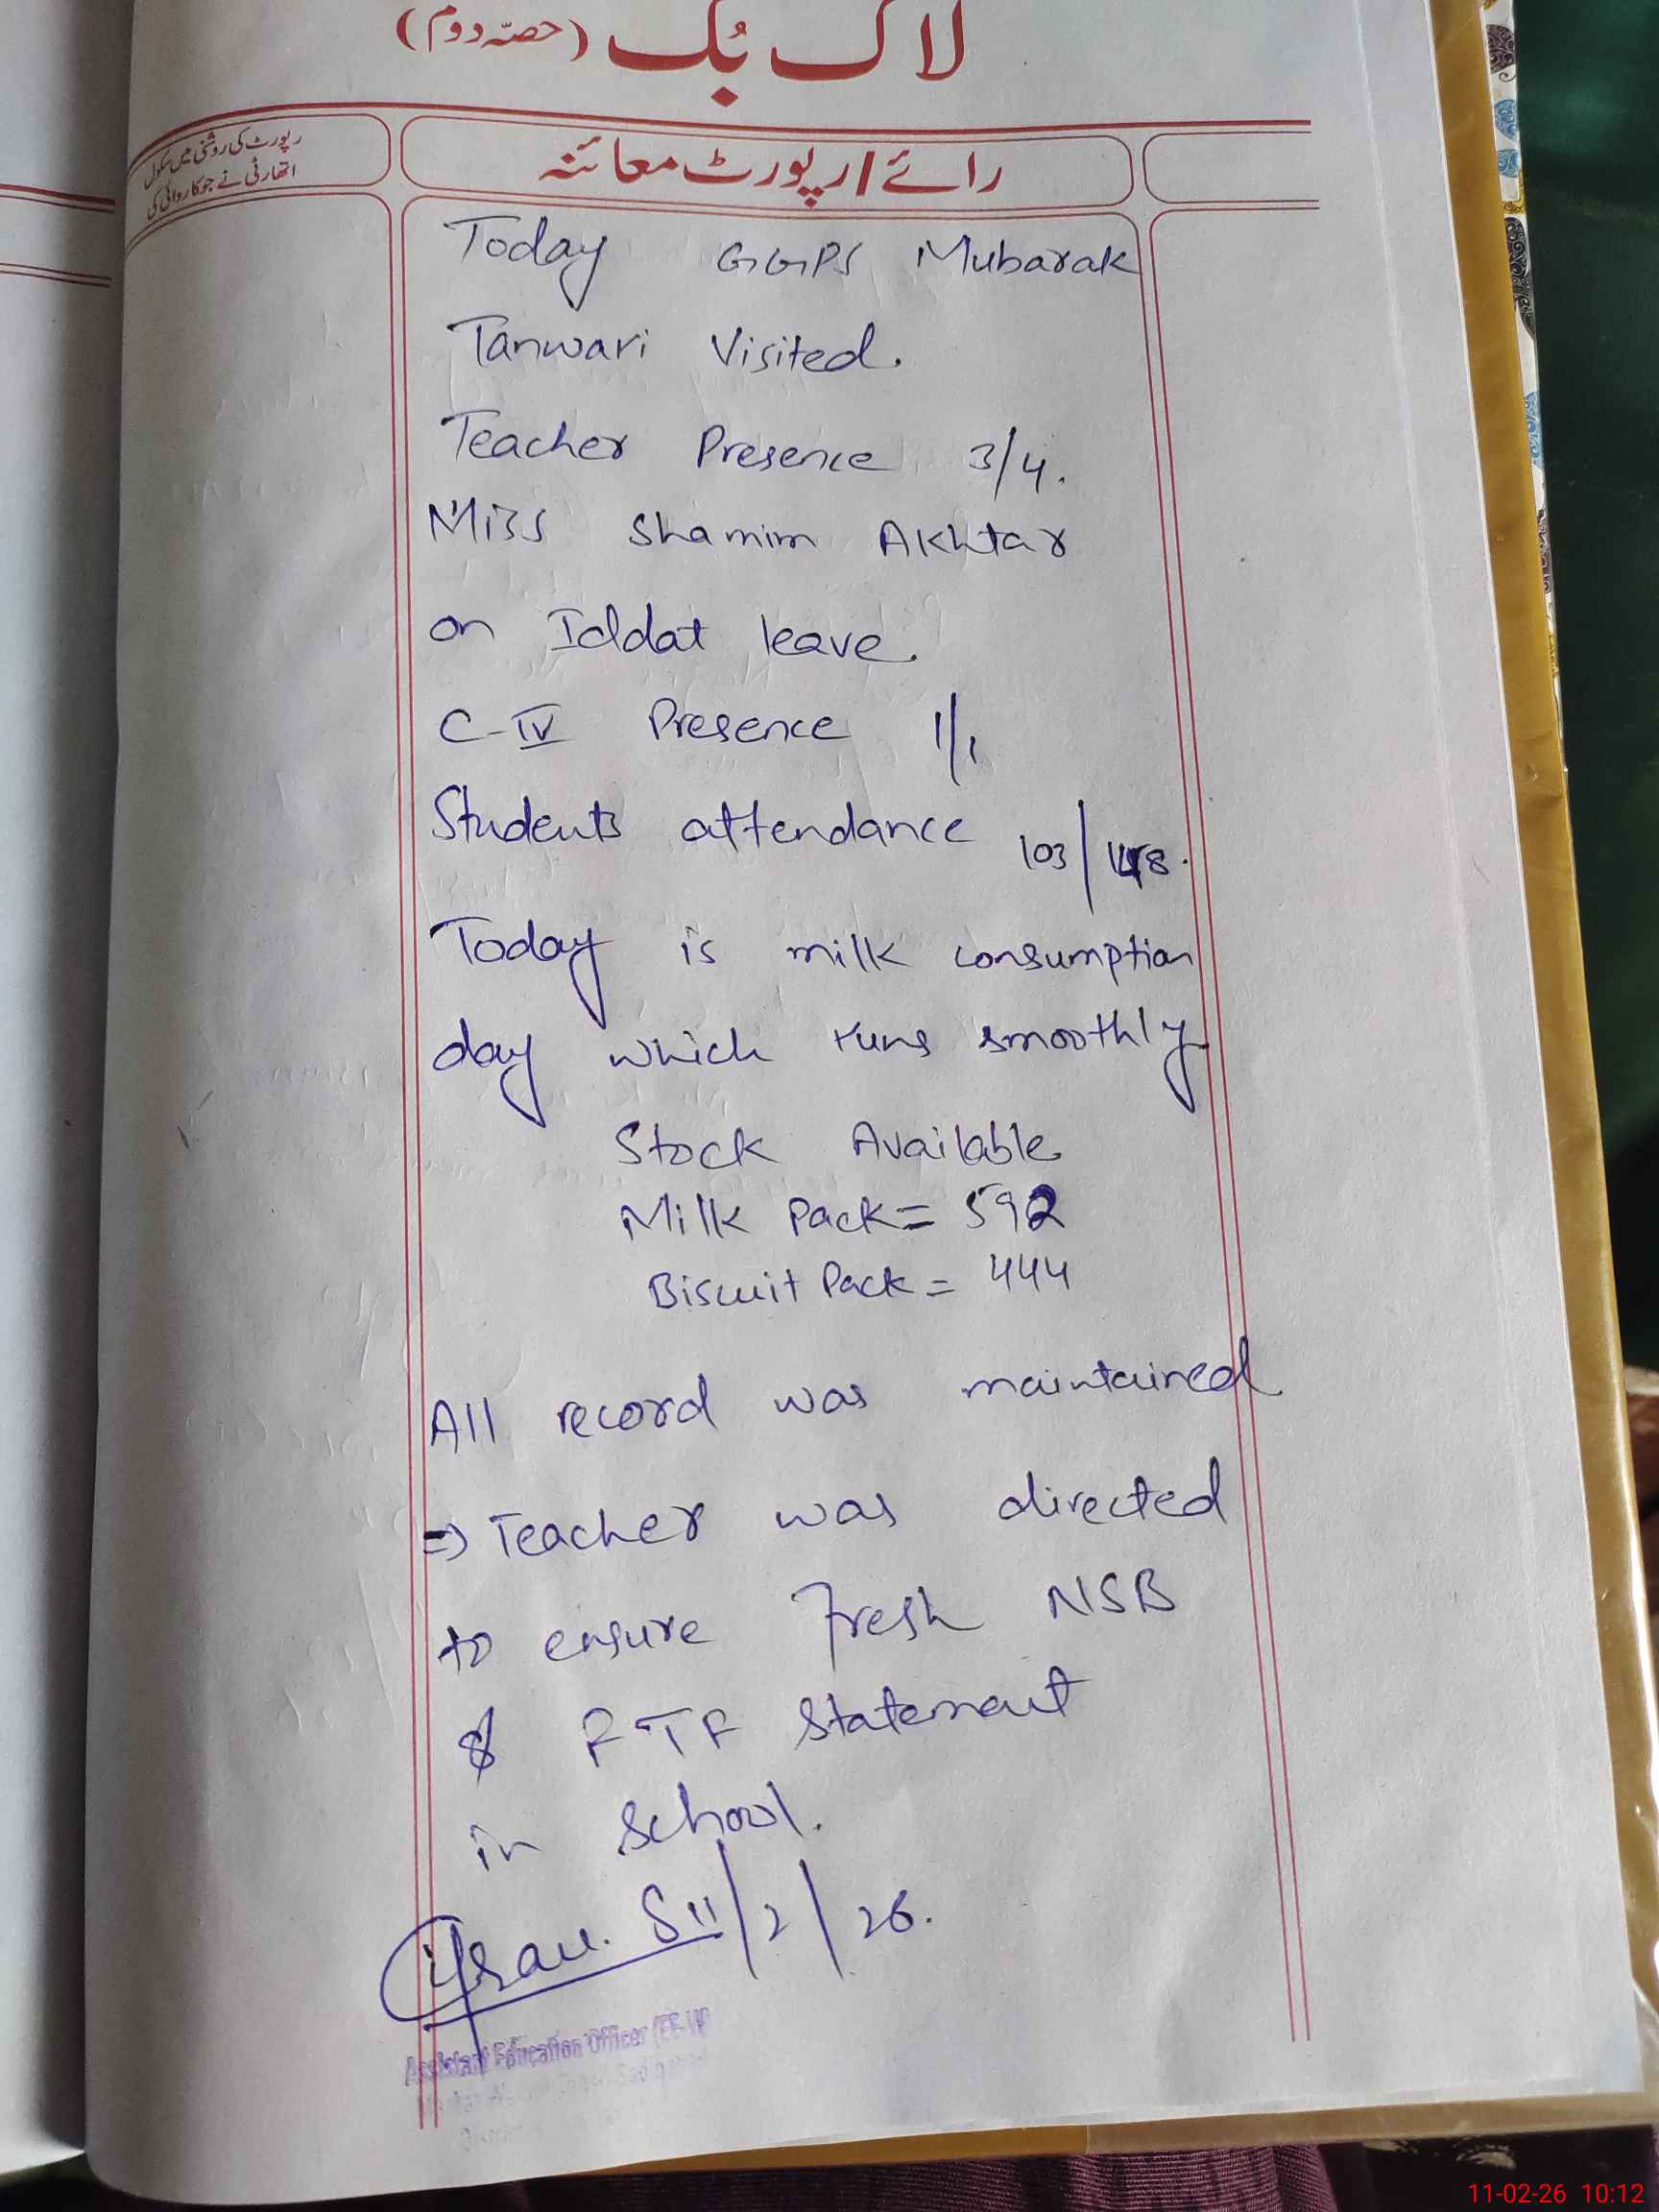 لاگ بُک (حصّہ دوم)
رپورٹ کی روشنی میں سکول
اتھارٹی نے جو کاروائی کی
رائے / رپورٹ معائنہ
Today GGPS Mubarak
Tanwari Visited.
Teacher Presence 3/4.
Miss Shamim Akhtar
on Iddat leave.
C-IV Presence 1/1
Students attendance 103/148.
Today is milk consumption
day which runs smoothly
Stock Available
Milk Pack = 592
Biscuit Pack = 444
All record was maintained
⇒ Teacher was directed
to ensure Fresh NSB
& FTF Statement
in school.
11/2/26.
Assistant Education Officer
11-02-26 10:12